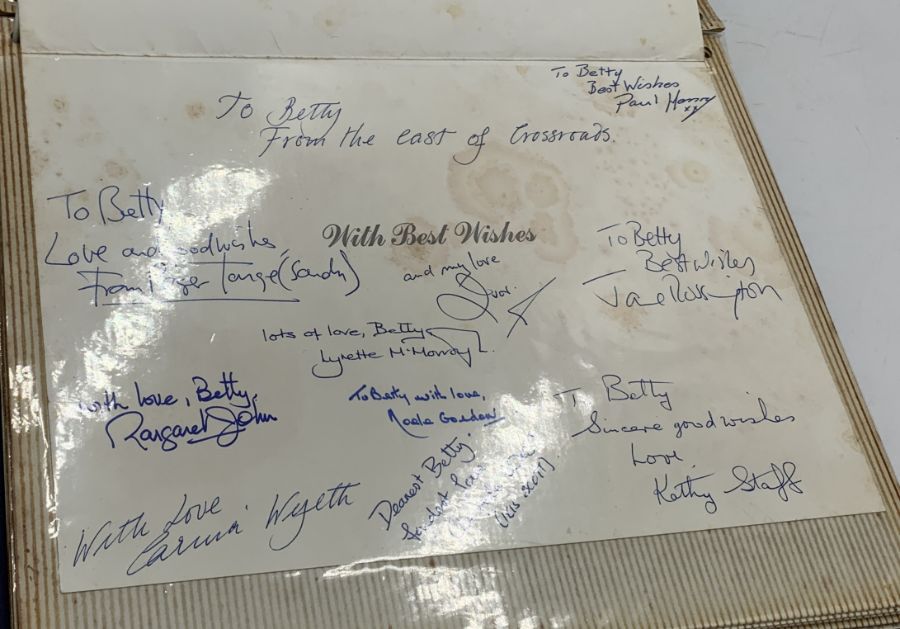 To Betty
Best Wishes
Paul Henry
xx
To Betty
From the cast of Crossroads.
To Betty
Love and good wishes,
From Roger Tonge (Sandy)
With Best Wishes
and my love
To Betty
Best Wishes
Jane Rossington
lots of love, Betty
Lynette McMorrough
with love, Betty,
Margaret John
To Betty with love,
Noele Gordon
To Betty
Sincere good wishes
Love,
Kathy Staff
With Love
Carina Wyeth
Dearest Betty
Fondest Love